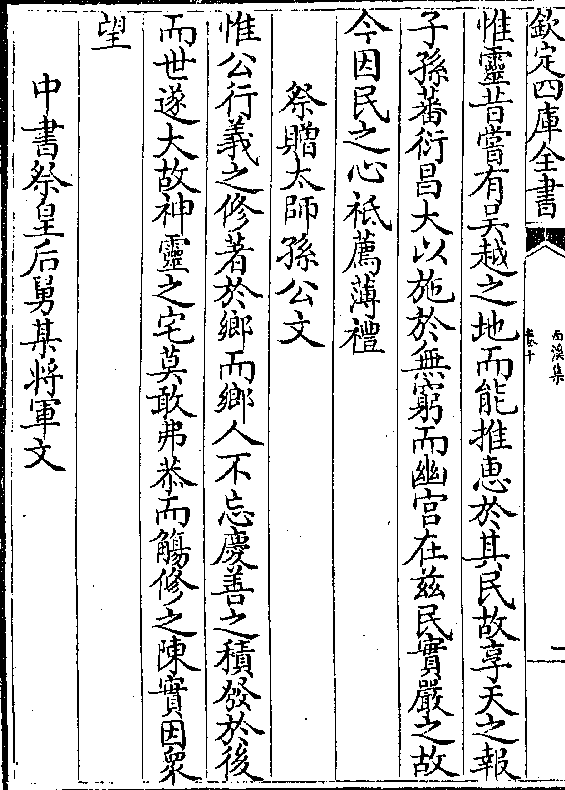 欽定四庫全書
西溪集
卷十
惟靈昔嘗有吳越之地而能推惠於其民故享天之報
子孫蕃衍昌大以施於無窮而幽宮在兹民實嚴之故
今因民之心祗薦薄禮
祭贈太師孫公文
惟公行義之修著於鄉而鄉人不忘慶善之積發於後
而世遂大故神靈之宅莫敢弗恭而觴修之陳實因衆
望
中書祭皇后舅某將軍文